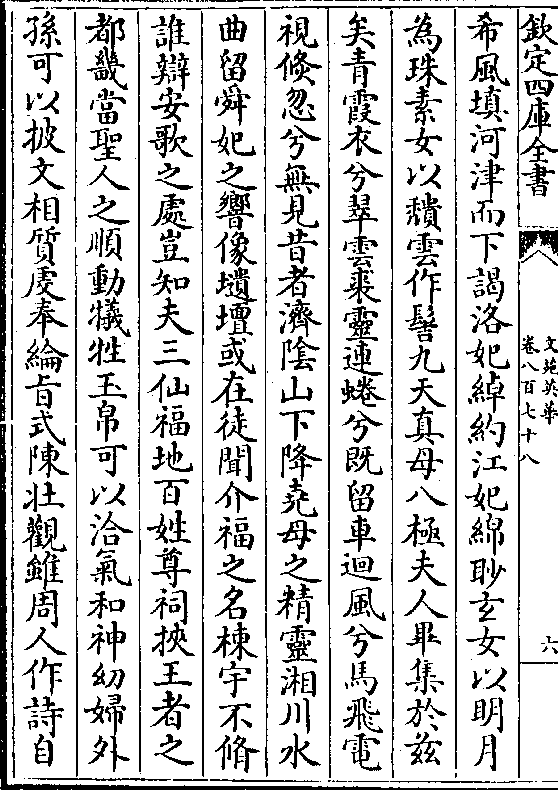 欽定四庫全書
文苑英華
卷八百七十八
六
希風填河津而下謁洛妃綽約江妃綿眇玄女以明月
為珠素女以纇雲作髻九天真母八極夫人畢集於兹
矣青霞衣兮翠雲裘靈連蜷兮既留車迴風兮馬飛電
視倐忽兮無見昔者濟陰山下降堯母之精靈湘川水
曲留舜妃之響像壝壇或在徒聞介福之名棟宇不脩
誰辯安歌之處豈知夫三仙福地百姓尊祠挾王者之
都畿當聖人之順動犧牲玉帛可以洽氣和神幼婦外
孫可以披文相質虔奉綸旨式陳壯觀雖周人作詩自